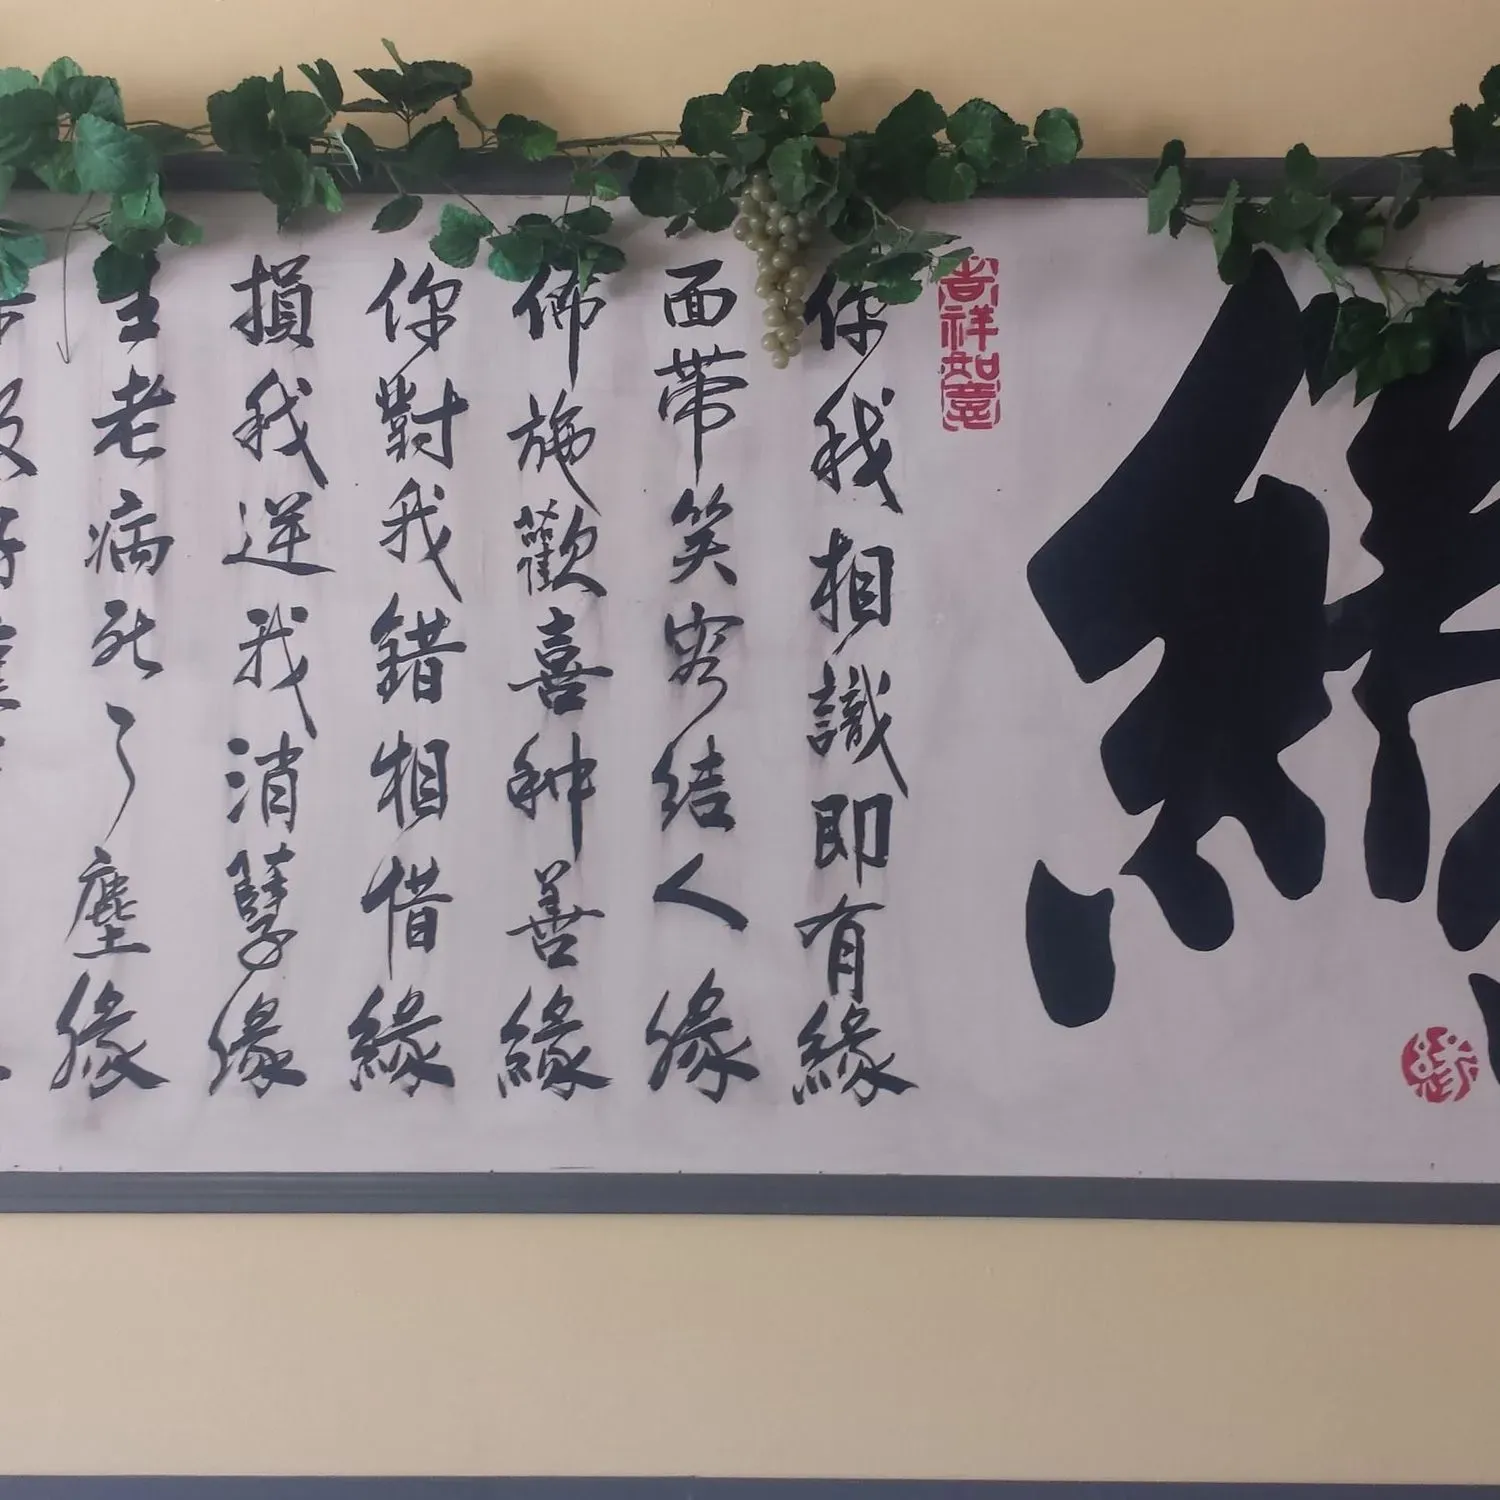 緣
吉祥如意
你我相識即有緣
面带笑容结人缘
佈施歡喜种善緣
你對我錯相惜緣
損我逆我消孽缘
生老病死了塵缘
緣